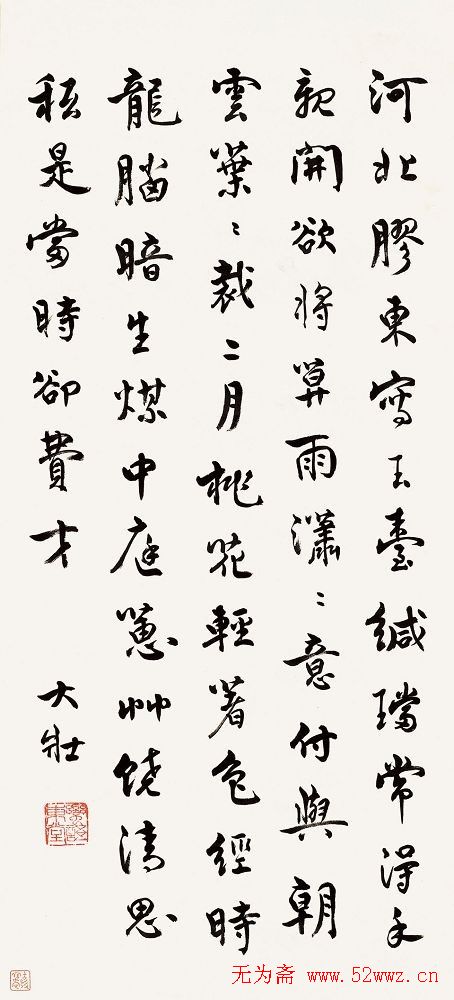 河北膠東寫玉臺緘璫常淂手
親開欲將算雨瀟〻意付與朝
雲葉〻裁二月桃花輕著色經時
龍腦暗生煤中庭蕙艸饒清思
秖是當時卻費才
大壯
无为斋 www.52wwz.cn